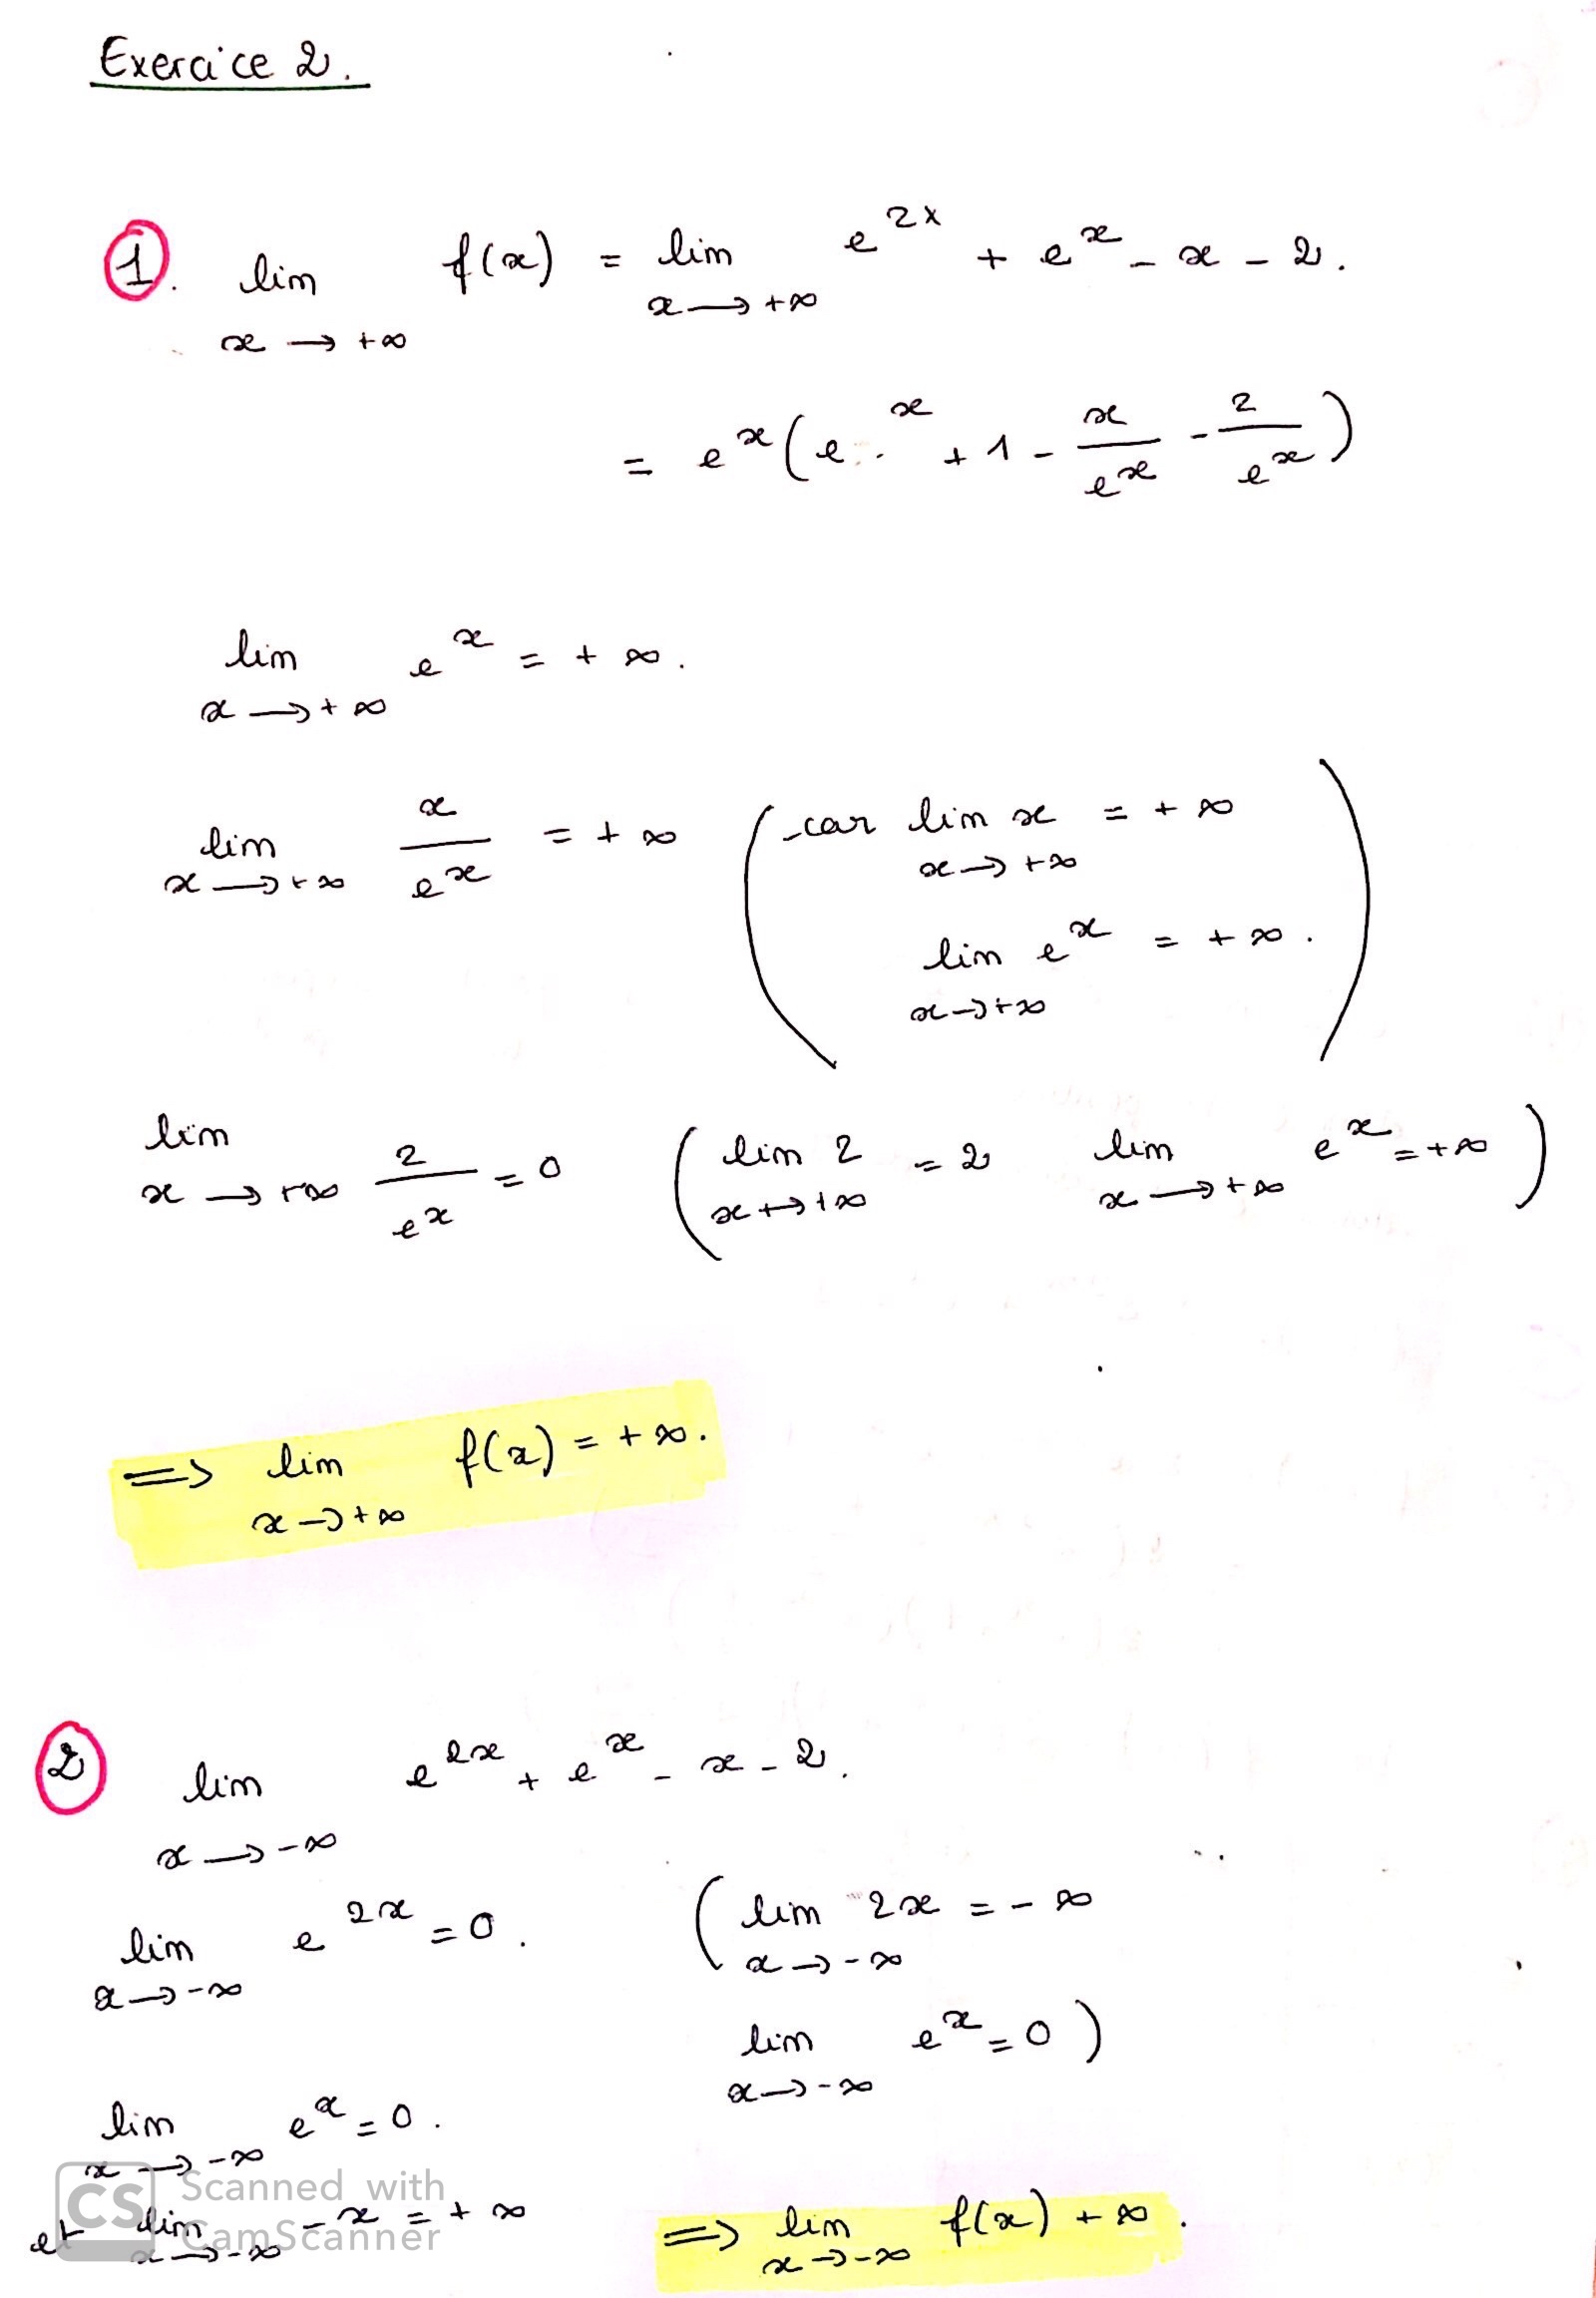 Exercice 2.
1. lim f(x) = lim e^{2x} + e^x - x - 2.
x → +∞ x → +∞
= e^x (e^x + 1 - x/e^x - 2/e^x)
lim e^x = + ∞.
x → + ∞
lim x/e^x = + ∞ (car lim x = + ∞
x → +∞ x → +∞
lim e^x = + ∞.)
x → +∞
lim 2/e^x = 0 (lim 2 = 2 lim e^x = +∞)
x → +∞ x → +∞ x → +∞
=> lim f(x) = + ∞.
x → +∞
2 lim e^{2x} + e^x - x - 2.
x → -∞
lim e^{2x} = 0. (lim 2x = - ∞
x → -∞ x → -∞
lim e^x = 0)
x → -∞
lim e^x = 0.
x → -∞
et lim - x = + ∞ => lim f(x) + ∞.
x → -∞ x → -∞
CS Scanned with
CamScanner